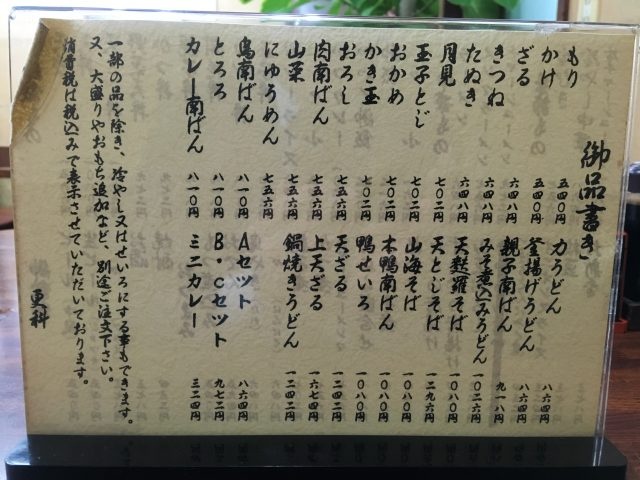 御品書き
もり 五四〇円
かけ 五四〇円
ざる 六四八円
きつね 六四八円
たぬき 六四八円
月見 七〇二円
玉子とじ 七〇二円
おかめ 七〇二円
かき玉 七〇二円
おろし 七五六円
肉南ばん 七五六円
山菜 七五六円
にゅうめん 七五六円
鳥南ばん 八一〇円
とろろ 八一〇円
カレー南ばん 八一〇円
力うどん 八六四円
釜揚げうどん 八六四円
親子南ばん 九一八円
みそ煮込みうどん 一〇二六円
天麩羅そば 一〇八〇円
天とじそば 一二九六円
山海そば 一〇八〇円
本鴨南ばん 一〇八〇円
鴨せいろ 一〇八〇円
天ざる 一二四二円
上天ざる 一六七四円
鍋焼きうどん 一二四二円
Aセット 八六四円
B・cセット 九七二円
ミニカレー 三二四円
一部の品を除き、冷やし又はせいろにする事もできます。
又、大盛りやおもち追加など、別途ご注文下さい。
消費税は税込みで表示させていただいております。
更科